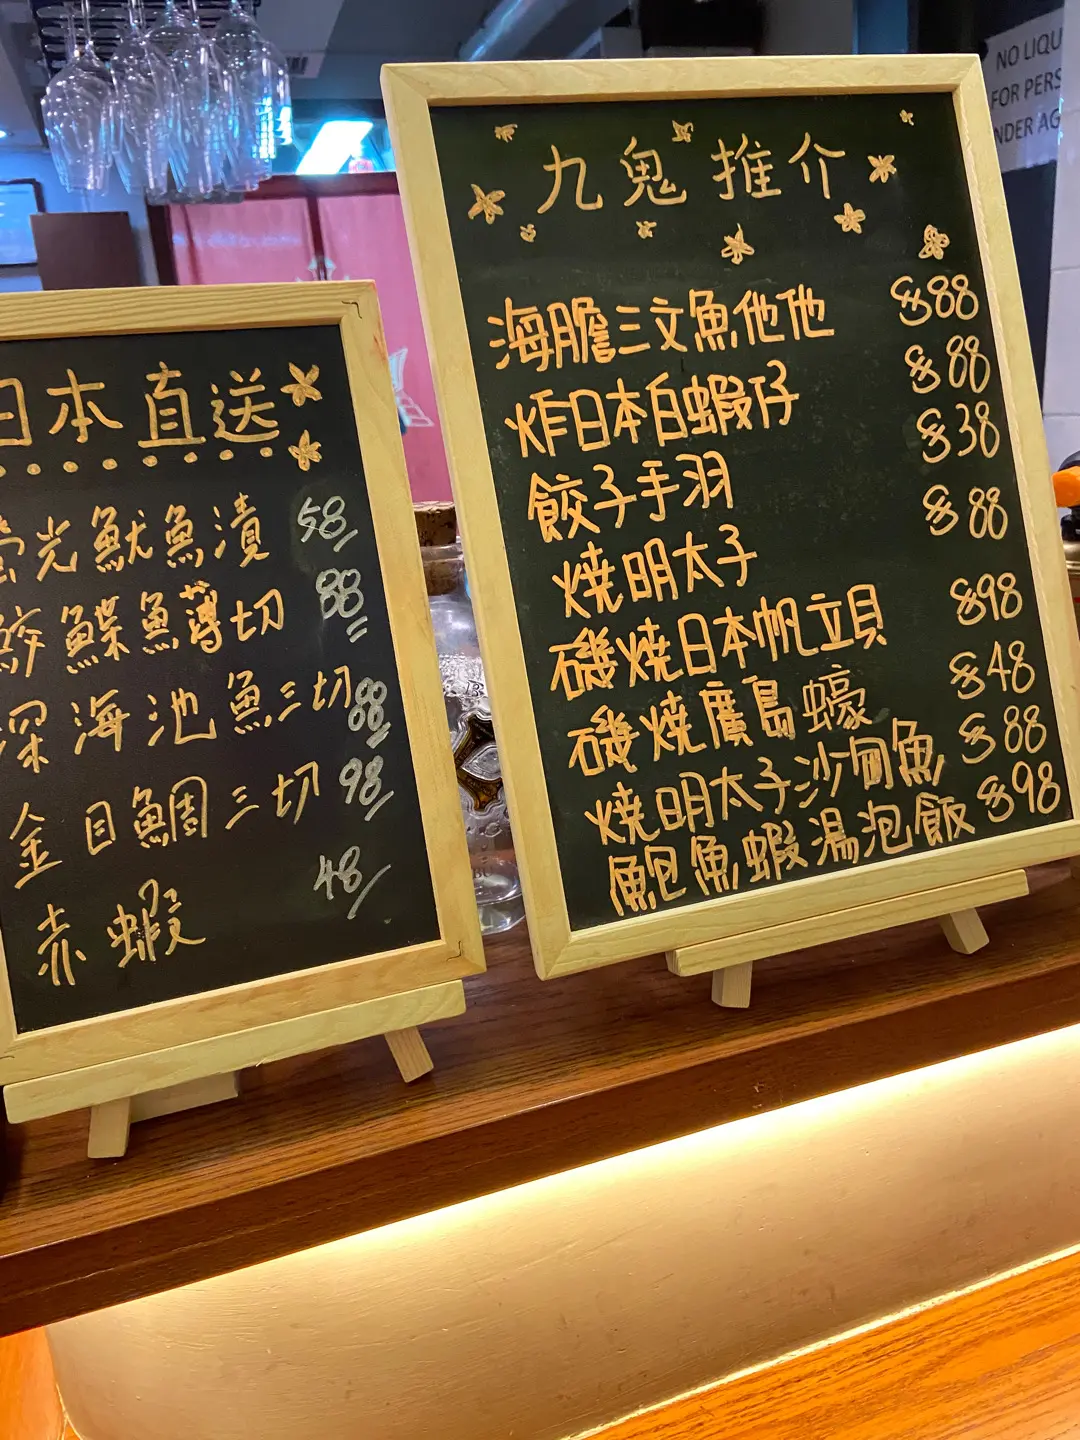 日本直送
螢光魷魚漬 58
鰈魚薄切 88
深海池魚三切 88
金目鯛三切 98
赤蝦 48
九鬼推介
海膽三文魚他他 $88
炸日本白蝦仔 $88
餃子手羽 $38
燒明太子 $88
磯燒日本帆立貝 $98
磯燒廣島蠔 $48
燒明太子沙甸魚 $88
鮑魚蝦湯泡飯 $98
NO LIQU
FOR PERS
NDER AG